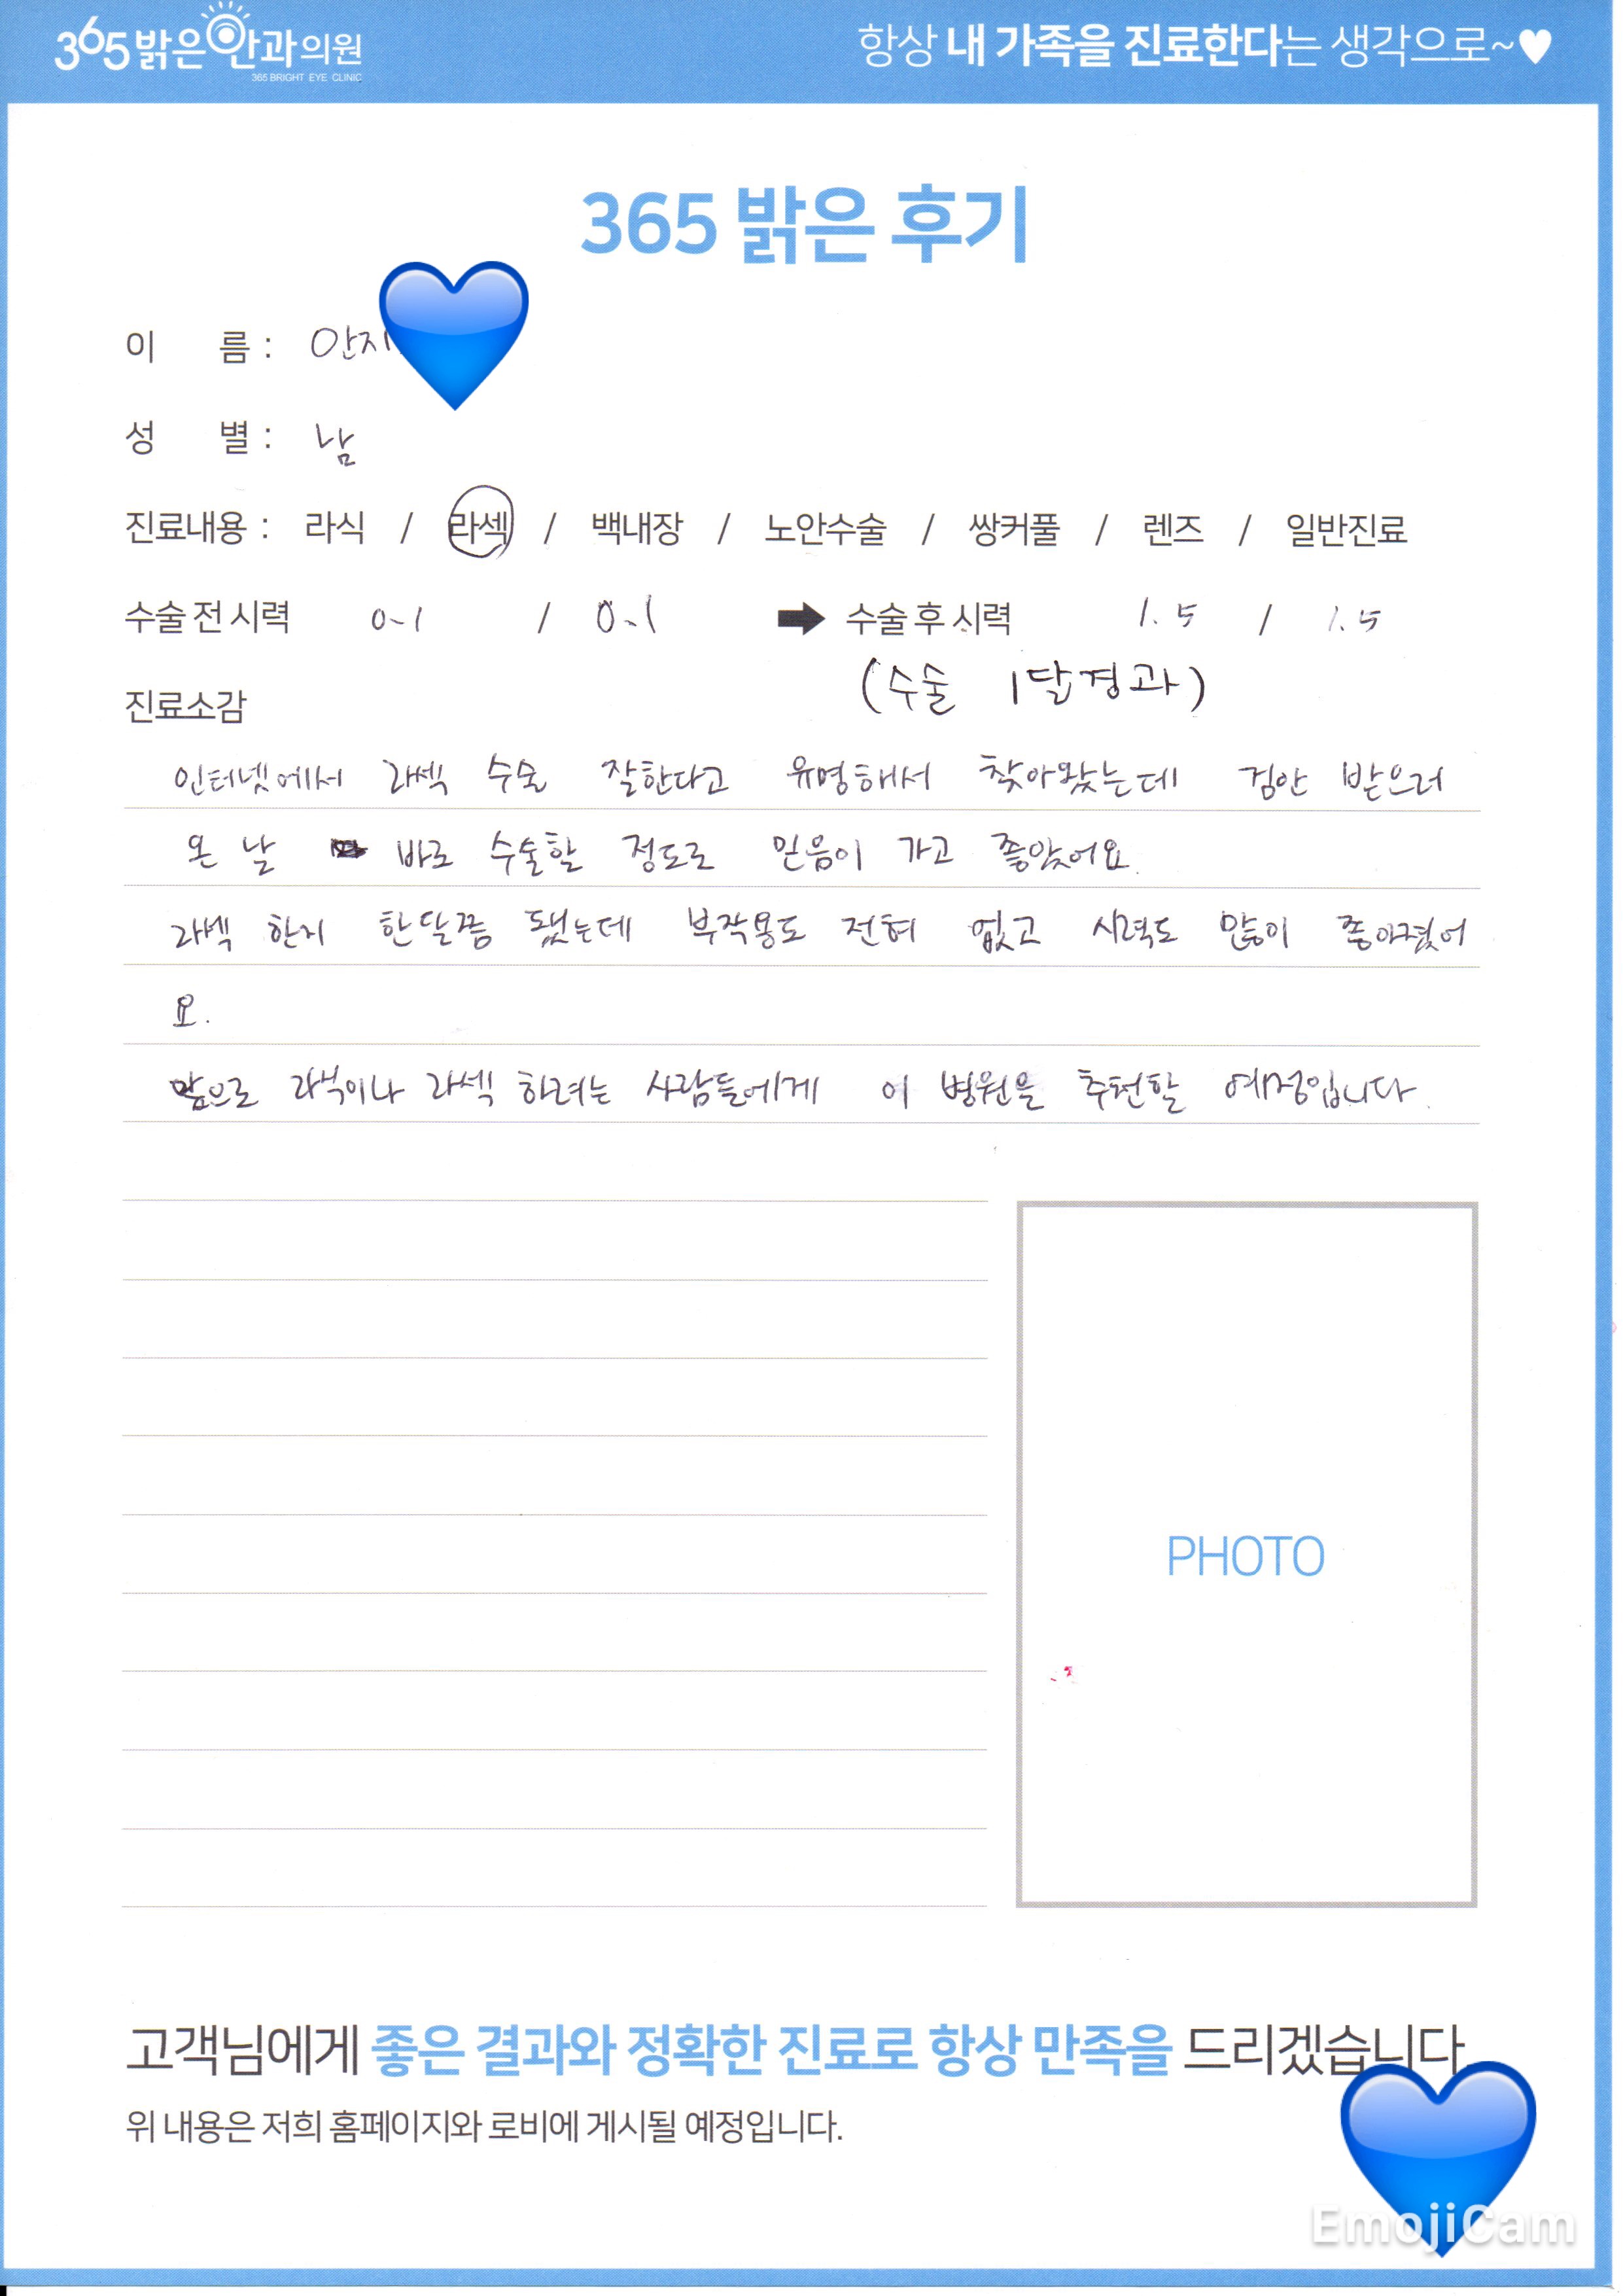 365밝은안과의원
365 BRIGHT EYE CLINIC
항상 내 가족을 진료한다는 생각으로~♥
365 밝은 후기
이 름 : 안지
성 별 : 남
진료내용 : 라식 / 라섹 / 백내장 / 노안수술 / 쌍커풀 / 렌즈 / 일반진료
수술 전 시력 0.1 / 0.1 ➡ 수술 후 시력 1.5 / 1.5
(수술 1달경과)
진료소감
인터넷에서 라섹 수술 잘한다고 유명해서 찾아왔는데 검안 받으러
온 날 바로 수술할 정도로 믿음이 가고 좋았어요.
라섹 한지 한달쯤 됐는데 부작용도 전혀 없고 시력도 많이 좋아졌어
요.
앞으로 라식이나 라섹 하려는 사람들에게 이 병원을 추천할 예정입니다.
PHOTO
고객님에게 좋은 결과와 정확한 진료로 항상 만족을 드리겠습니다.
위 내용은 저희 홈페이지와 로비에 게시될 예정입니다.
EmojiCam